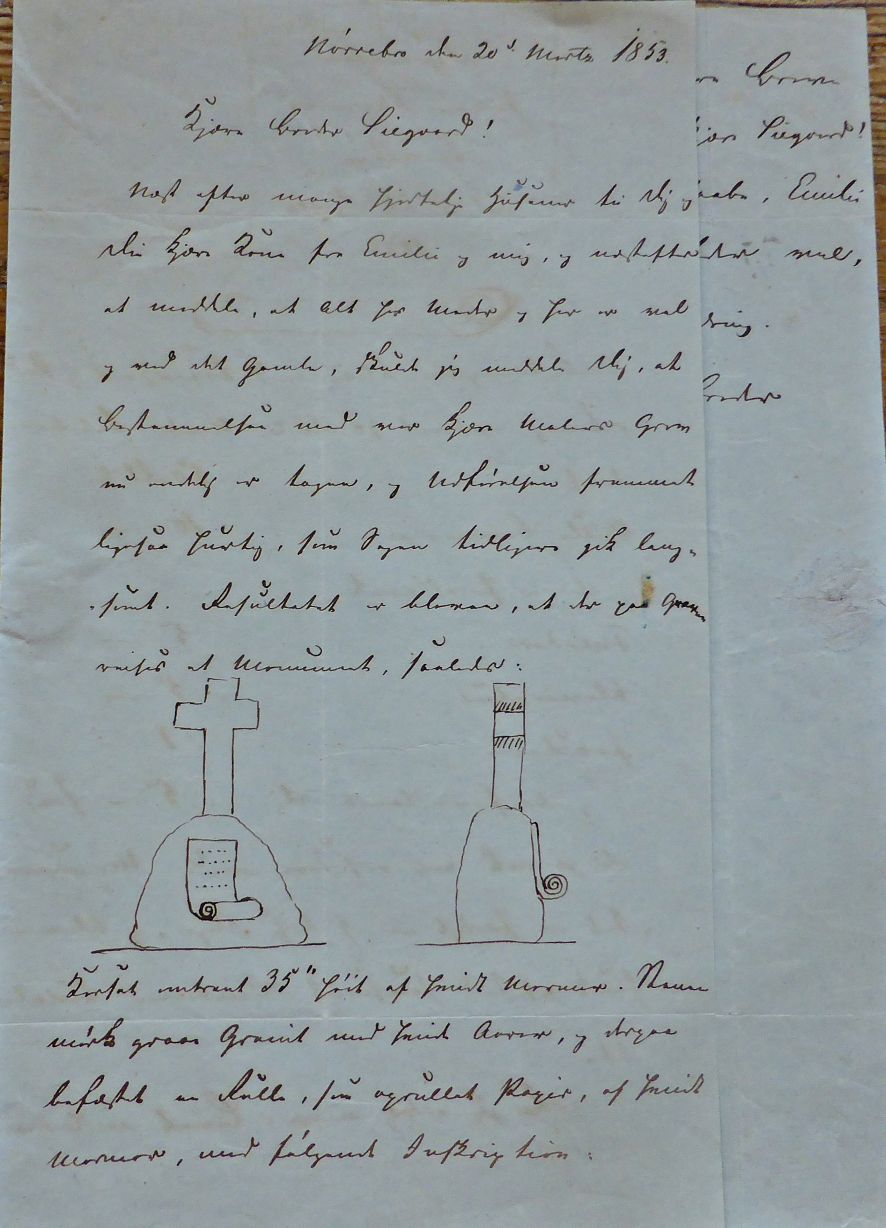 Nörrebro den 20d Marts 1853.
Kjære Broder Siegaard!
Næst efter mange hjertelige Hilsener til Dig og
Din kjære Kone fra Emilie og mig, og næstefter
at meddele, at Alt hos Moder og her er vel
og ved det Gamle, skulde jeg meddele Dig, at
Bestemmelsen med vor kjære Maters Grav
nu endelig er tagen, og Udförelsen fremmet
ligesaa hurtig, som Sagen tidligere gik lang-
-somt. Resultatet er bleven, at der paa Graven
reises et Monument, saaledes:
Korset omtrent 35" höit af hvidt Marmor. Stenen
mörk graae Granit med hvide Aarer, og derpaa
befæstet en Rulle, som oprullet Papir, af hvidt
Marmor, med fölgende Inskription:
kjære Siegaard!
haabe, Emilie
vel,
Broder